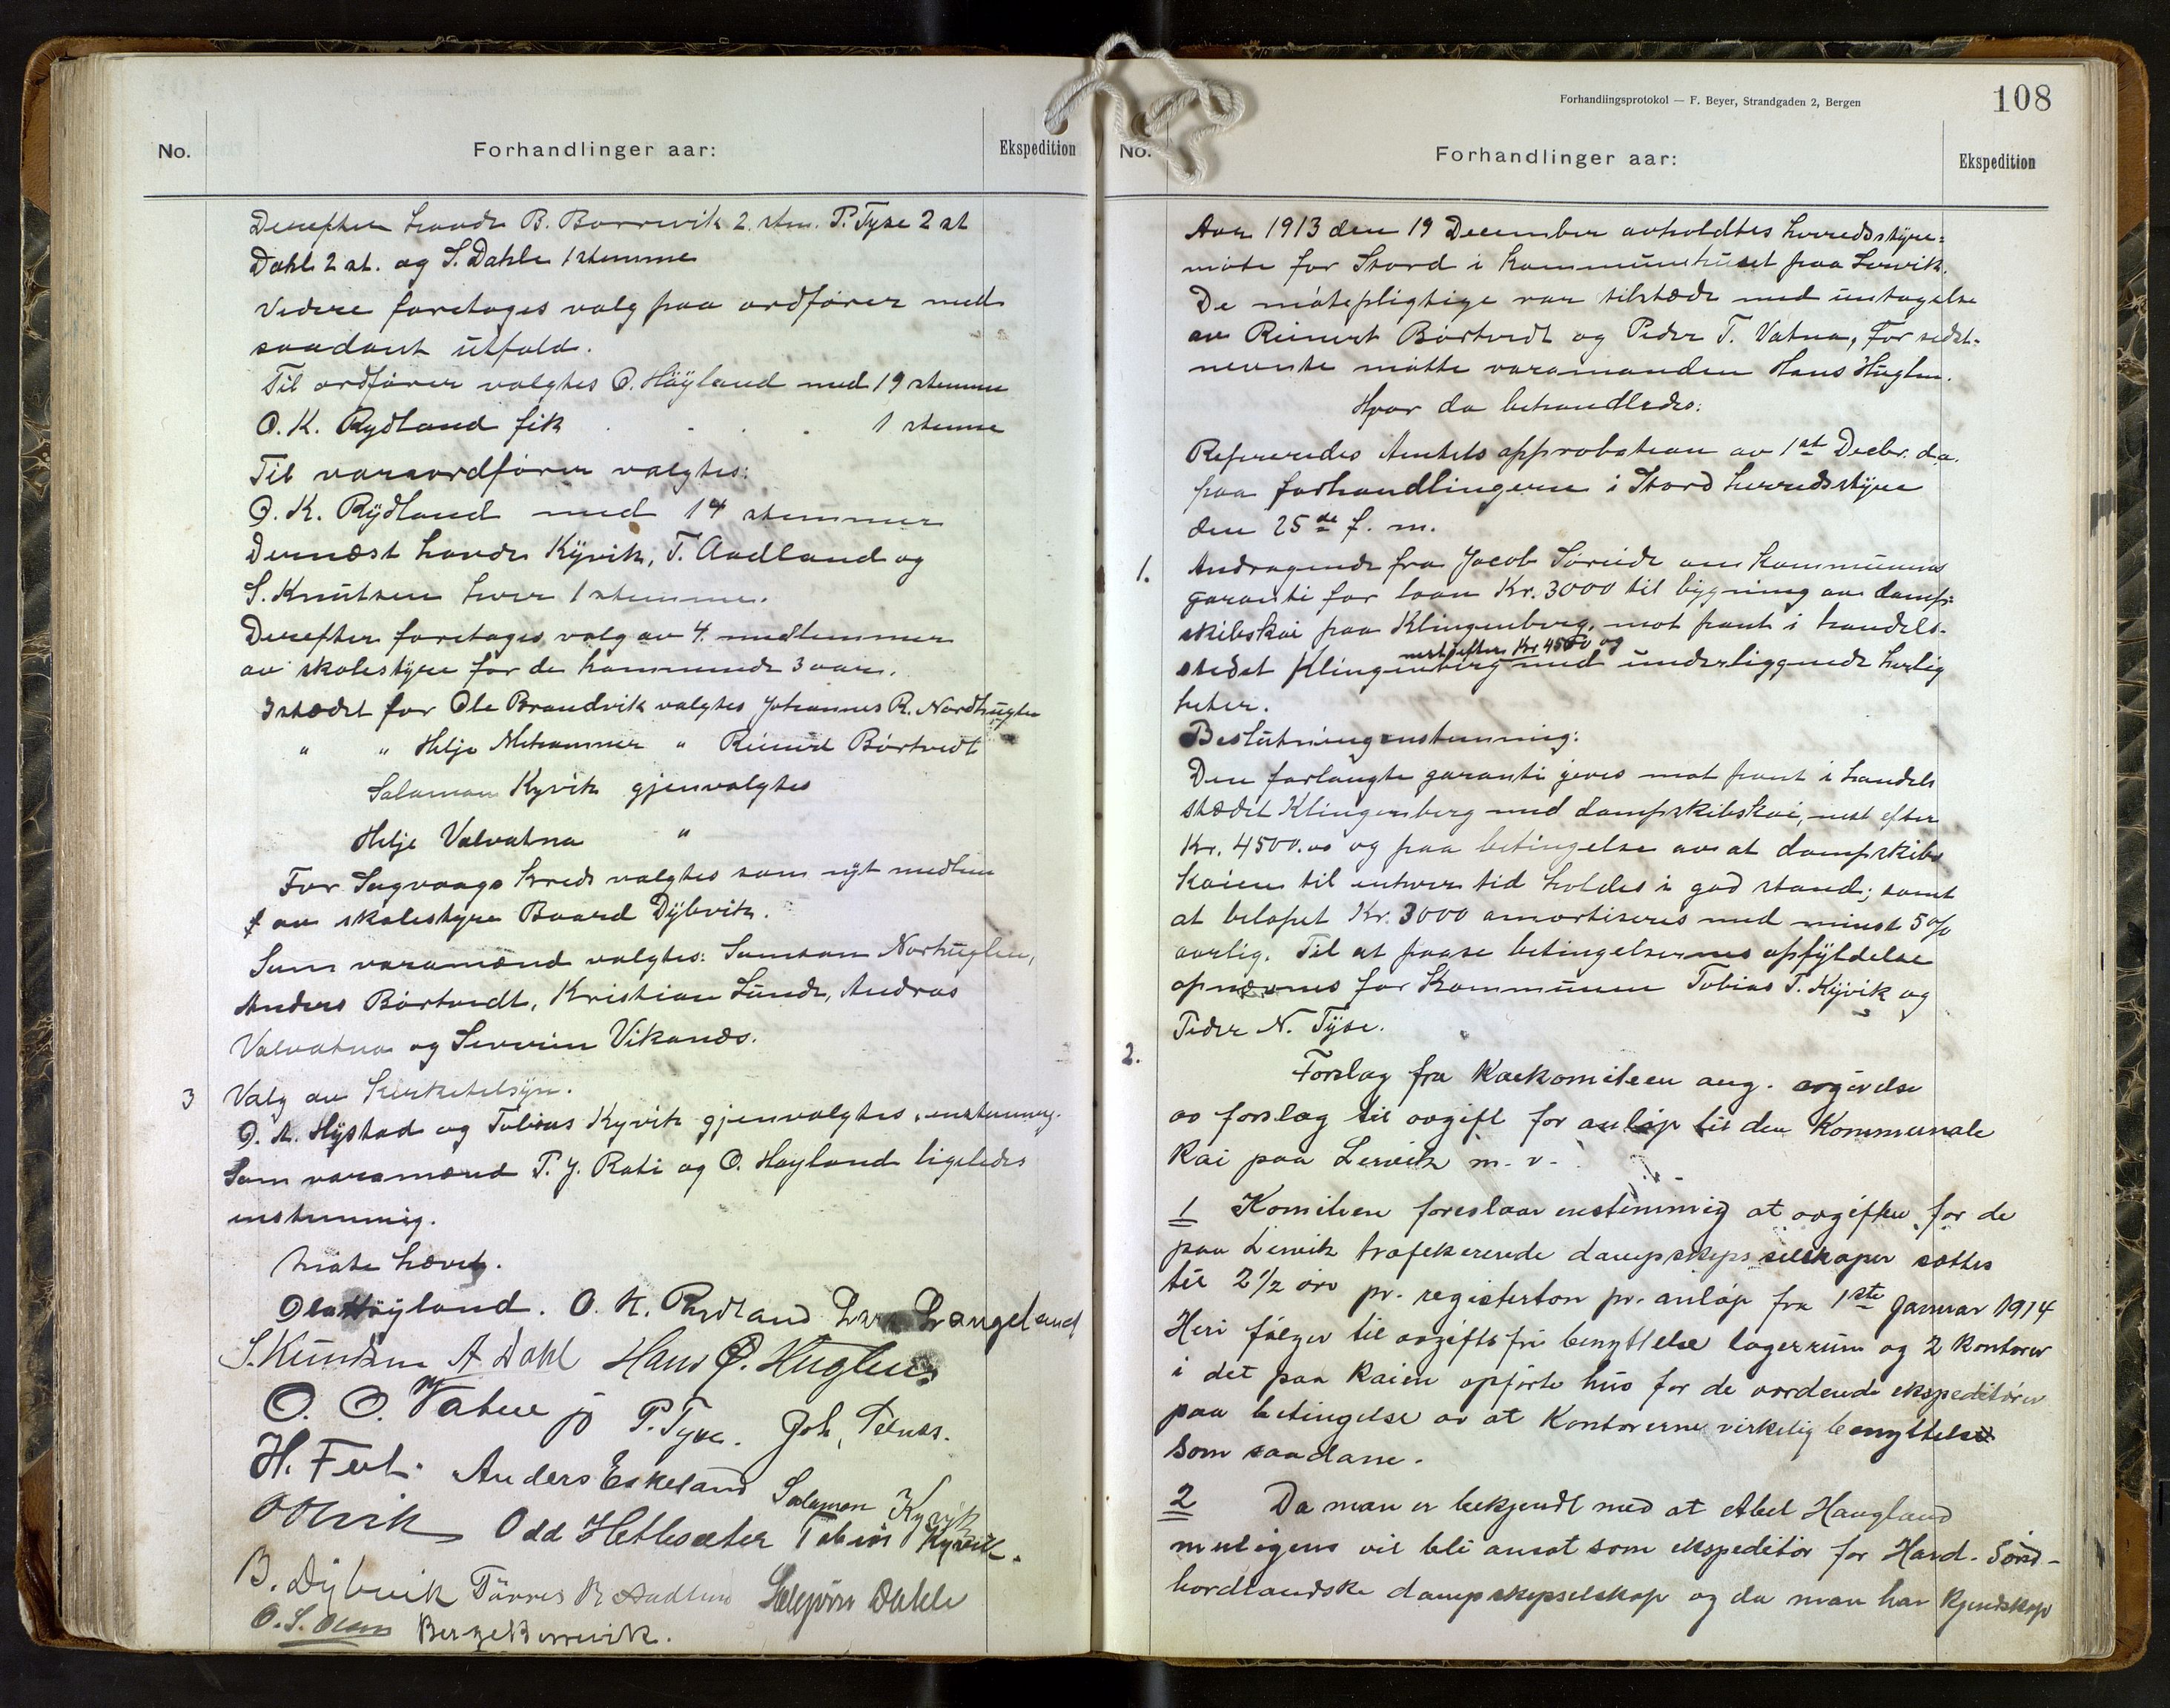 No.
Forhandlinger aar:
Ekspedition
Derefter havde B. Borrevik 2. stm. P. Tyse 2 st
Dahl 2 st. og S. Dahle 1 stemme
Videre foretoges valg paa ordfører med
saadant utfald.
Til ordfører valgtes O. Höyland med 19 stemme
O. K. Rydland fik . . . . 1 stemme
Til varaordfører valgtes:
O. K. Rydland med 14 stemmer
Dernæst havde Kyvik, T. Aadland og
S. Knutsen hver 1 stemme.
Derefter foretoges valg av 4. medlemmer
av skolestyre for de kommende 3 aar.
Istædet for Ole Brandvik valgtes Johannes R. Nordhuglen
" " Helje Mehammer " Reinert Börtvedt
Salamon Kyvik gjenvalgtes
Helje Valvatna "
For Sagvaags kreds valgtes som nyt medlem
av skolestyre Baard Dybvik.
Som varamænd valgtes: Samson Norhuglen,
Anders Börtvedt, Kristian Lunde, Andras
Valvatna og Severin Vikanes.
3 Valg av Kirketilsyn.
O. A. Hystad og Tobias Kyvik gjenvalgtes enstemmig.
Som varamænd P. J. Rati og O. Høyland ligeledes
enstemmig.
Møte hævet.
Ola Höyland. O. K. Rydland Lars Langeland
S. Knutsen A Dahl Hans Ø. Huglen
O. O. Vatne jr P. Tyse. Joh,
H. Fert. Anders Eskeland Salamon Kyvik
Odd Hetlesæter Tobias Kyvik.
B. Dybvik Törres B Aadland Dahle
O. S. Olsen Berge Borrevik.
Forhandlingsprotokol — F. Beyer, Strandgaden 2, Bergen
108
No.
Forhandlinger aar:
Ekspedition
Aar 1913 den 19 December avholdtes herredsstyre=
möte for Stord i kommunehuset paa Lervik.
De mötepligtige var tilstæde med undtagelse
av Reinert Börtvedt og Peder T. Vatna, for sidst-
nevnte mötte varamanden Hans Huglen.
Hvor da behandledes:
Refereredes Amtets approbation av 1st Decbr. d.a.
paa forhandlingerne i Stord herredsstyre
den 25de f. m.
1. Andragende fra Jacob Söreide om Kommunens
garanti for laan Kr. 3000 til bygning av damp=
skibskai paa Klingenberg, mot pant i handels-
nest efter Kr 4500 og
stedet Klingenberg med underliggende herlig
heter.
Beslutning enstemmig:
Den forlangte garanti gives mot pant i handels
stædet Klingenberg med dampskibskai, nest efter
Kr. 4500.00 og paa betingelse av at dampskibs
kaien til enhver tid holdes i god stand; samt
at belöpet Kr. 3000 amortiseres med minst 5%
aarlig. Til at paase betingelsernes opfyldelse
opnævnes for Kommunen Tobias T. Kyvik og
Peder N. Tyse.
2. Forslag fra Kaikomiteen ang. avgivelse
av forslag til avgift for anlöp til den Kommunale
Kai paa Lervik m. v.
1 Komiteen foreslaar enstemmig at avgiften for de
paa Lervik trafekerende dampskips selskaper sættes
til 2 1/2 öre pr. registerton pr. anlöp fra 1ste Januar 1914
Heri fölger til avgiftsfri benyttelse lagerrum og 2 kontorer
i det paa Kaien opförte hus for de vordende ekspeditörer
paa betingelse av at Kontorerne virkelig benyttels
som saadane.
2 Da man er bekjendt med at Abel Haugland
muligens vil bli ansat som ekspeditör for Hard. Sönd-
hordlandske dampskipsselskap og da man har Kjendskap